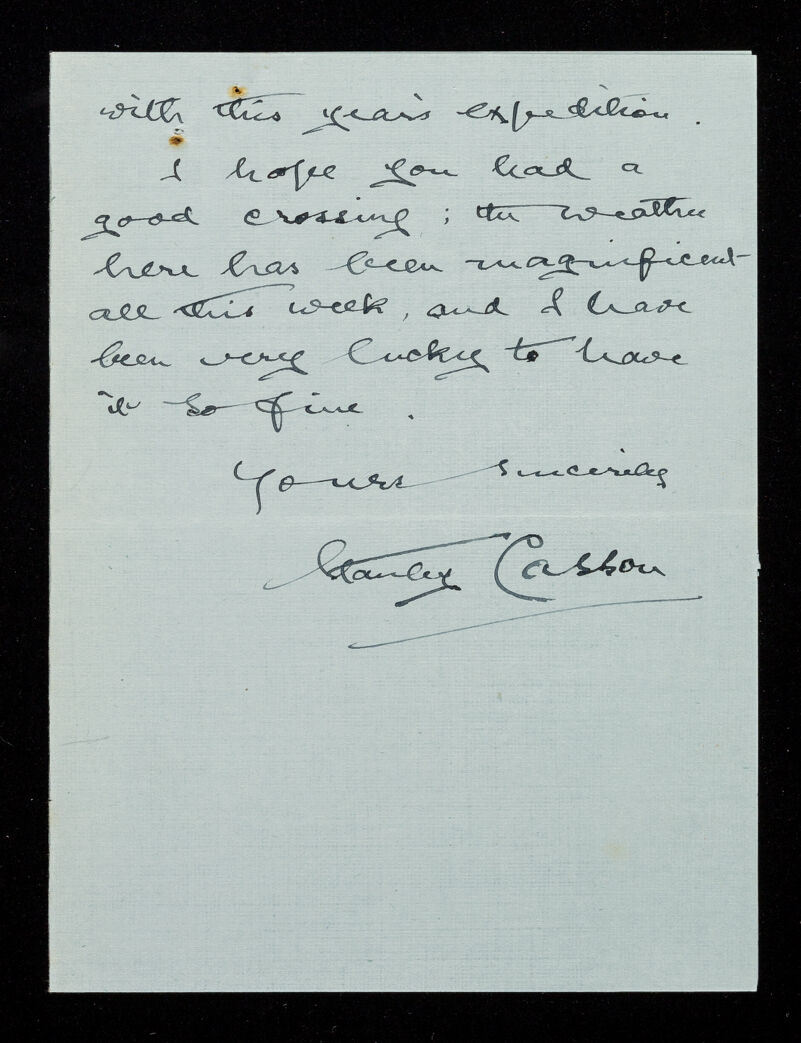 with this year's expedition.
I hope you had a
good crossing; the weather
here has been magnificent
all this week, and I have
been very lucky to have
it so fine.
Yours sincerely
Stanley Casson